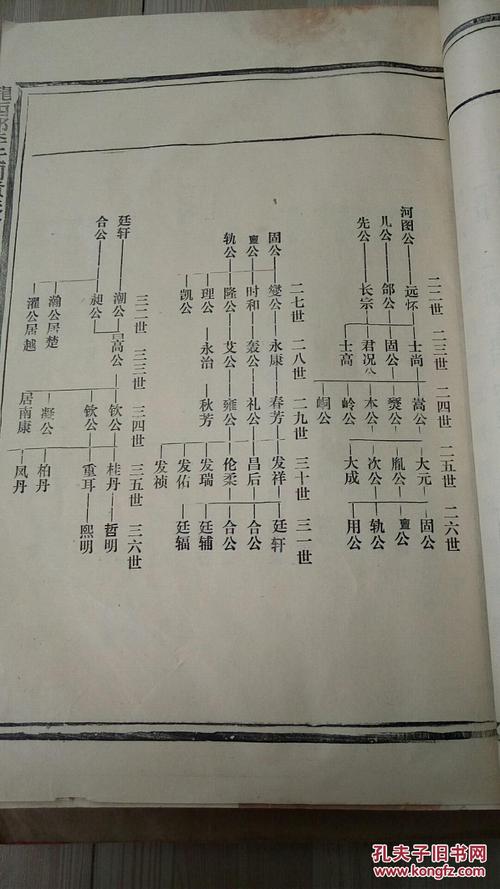 二二世 二三世 二四世 二五世 二六世
河图公 远怀 士尚 嵩公 大元 固公
儿公 郃公 固公 胤公
先公 长宗 君况公 本公 次公 轨公
士高 岭公 大成 用公
峒公
二七世 二八世 二九世 三十世 三一世
固公 燮公 永康 春芳 发祥 廷轩
时和 轰公 礼公 昌后 合公
轨公 隆公 艾公 雍公 伦柔 合公
理公 永治 秋芳 发瑞 廷辅
凯公 发佑 廷辐
发祯
三二世 三三世 三四世 三五世 三六世
廷轩 潮公 高公 钦公 桂丹 哲明
合公 昶公 钦公 重耳 熙明
瀚公居楚 凝公 柏丹
濯公居越 居南康 凤丹
孔夫子旧书网
www.kongfz.com